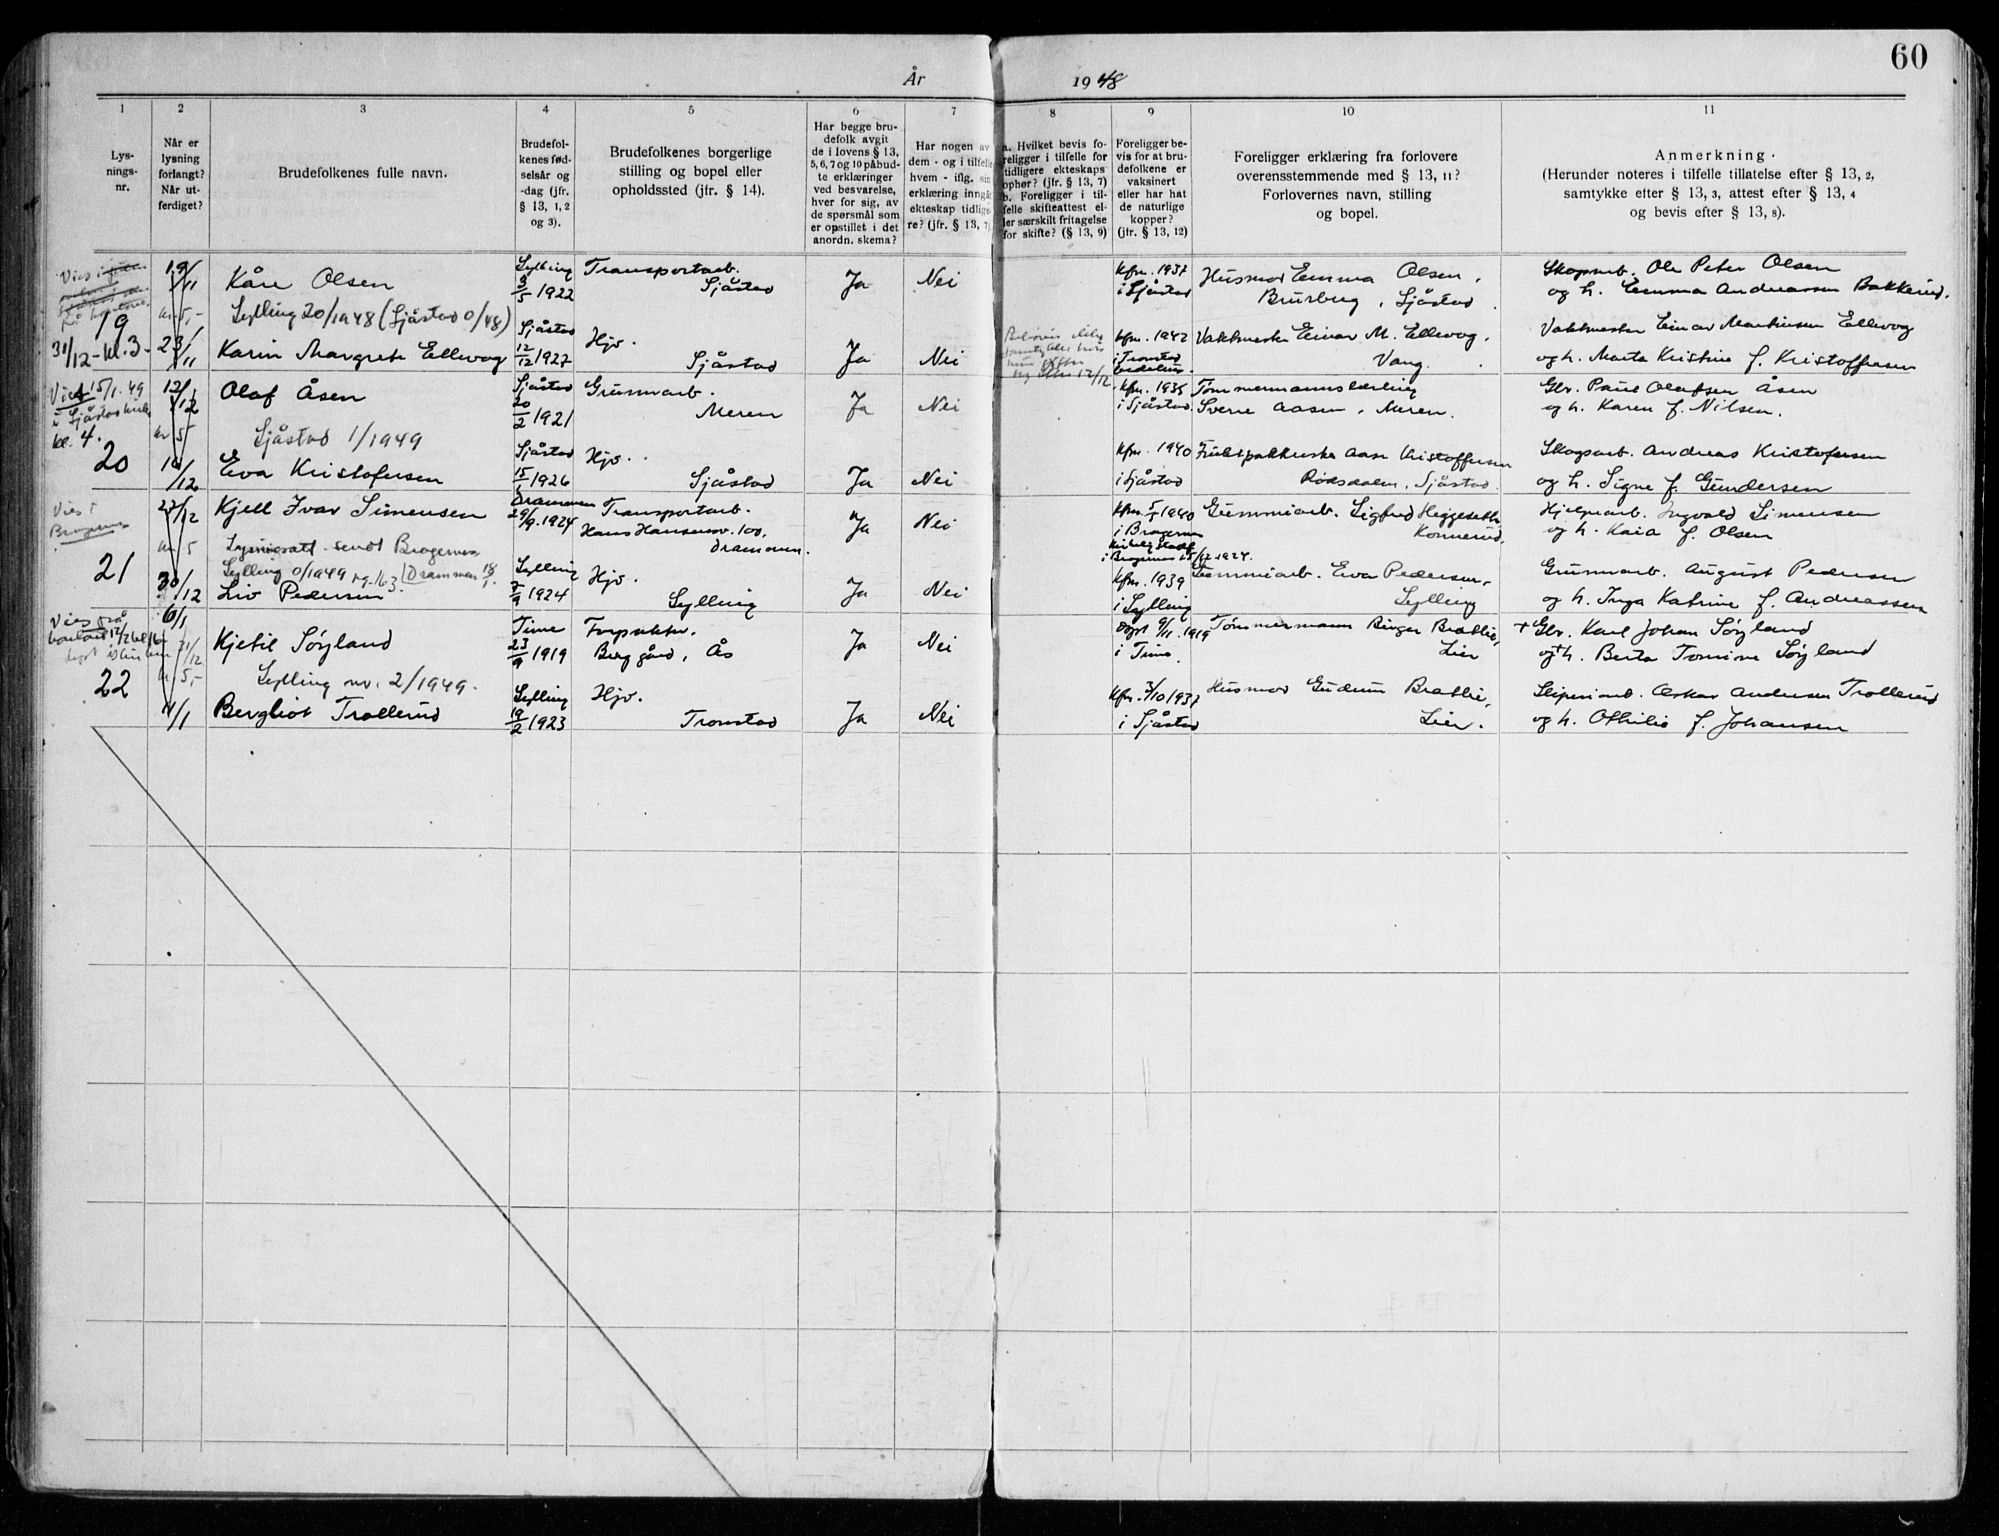 60
År 1948
1 2 3 4 5 6 7 8 9 10 11
Lys-
nings-
nr.
Når er
lysning
forlangt?
Når ut-
ferdiget?
Brudefolkenes fulle navn.
Brudefol-
kenes fød-
selsår og
-dag (jfr.
§ 13, 1, 2
og 3).
Brudefolkenes borgerlige
stilling og bopel eller
opholdssted (jfr. § 14).
Har begge bru-
defolk avgit
de i lovens § 13,
5, 6, 7 og 10 påbud-
te erklæringer
ved besvarelse,
hver for sig, av
de spørsmål som
er opstillet i det
anordn. skema?
Har nogen av
dem - og i tilfelle
hvem - iflg. sin
erklæring inngåt
ekteskap tidlige-
re? (jfr. § 13, 7)
a. Hvilket bevis fo-
religger i tilfelle for
tidligere ekteskaps
ophør? (jfr. § 13, 7)
b. Foreligger i til-
felle skifteattest el-
ler særskilt fritagelse
for skifte? (§ 13, 9)
Foreligger be-
vis for at bru-
defolkene er
vaksinert
eller har hat
de naturlige
kopper?
(jfr. § 13, 12)
Foreligger erklæring fra forlovere
overensstemmende med § 13, 11?
Forlovernes navn, stilling
og bopel.
Anmerkning.
(Herunder noteres i tilfelle tillatelse efter § 13, 2,
samtykke efter § 13, 3, attest efter § 13, 4
og bevis efter § 13, 8).
19
31/12 - kl. 3 -
19/11 Kåre Olsen
Sylling 3/5 1922
Transportarb.
Sjåstad
Ja Nei
Kfm. 1937
i Sjåstad
Husmor Emma Olsen,
Brurberg, Sjåstad.
Skogsarb. Ole Peter Olsen
og h. Emma Andreassen Bakkerud.
kr. 5,- Sylling 20/1948 (Sjåstad 0/48)
23/11 Karin Margrete Ellevog
Sjåstad 12/12 1927
Hjv.
Sjåstad
Ja Nei
Kfm. 1942
i Tranby
Vaktmester Einar M. Ellevog,
Vang.
Vaktmester Einar Martinsen Ellevog
og h. Marta Kristine f. Kristoffersen
Vies 15/1. 49
i Sjåstad kirke
kl. 4.
20
12/12 Olaf Åsen
Sjåstad 20/2 1921
Grunnarb.
Meren
Ja Nei
Kfm. 1935
i Sjåstad
Tømmermannslærling
Sverre Aasen, Meren.
Gbr. Paul Olafsen Åsen
og h. Karen f. Nilsen.
kr 5 Sjåstad 1/1949
16/12 Eva Kristofersen
Sjåstad 15/1 1926
Hjv.
Sjåstad
Ja Nei
Kfm. 1940
i Sjåstad
Fruktpakkerske Aase Kristoffersen
Rødsdalen, Sjåstad.
Skogsarb. Andreas Kristofersen
og h. Signe f. Gundersen
Vies i
Bragernes
21
22/12 Kjell Ivar Simensen
Drammen 29/9. 1924
Transportarb.
Hans Hansensv. 100,
Drammen.
Ja Nei
i Bragernes
Gummiarb. Sigfred Heggeseth
Konnerud,
Hjelpearb. Ingvald Simensen
og h. Kaia f. Olsen
kr 5 Lysningsatt. sendt Bragernes
Sylling 0/1949 rg. 163 Drammen 18/1
30/12 Liv Pedersen
Sylling 7/9 1924
Hjv.
Sylling
Ja Nei
Kfm. 1939
i Sylling
Gummiarb. Eva Pedersen,
Sylling
Grunnarb. August Pedersen
og h. Inga Katrine f. Andreassen
22
6/1 Kjetil Søyland
Time 23/9 1919
Forpakter.
Berg gård, Ås
Ja Nei
Døpt 9/11. 1919
i Time.
Tømmermann Birger Bratlie,
Lier
+ Gbr. Karl Johan Søyland
og + h. Berta Tomine Søyland
kr 5,- Sylling nr. 2/1949.
11/1 Bergliot Trollerud
Sylling 19/2 1923
Hjv.
Tronstad
Ja Nei
Kfm. 3/10 1937
i Sjåstad
Husmor Gudrun Bratlie,
Lier.
Sliperiarb. Oskar Andersen Trollerud
og h. Othilie f. Johansen